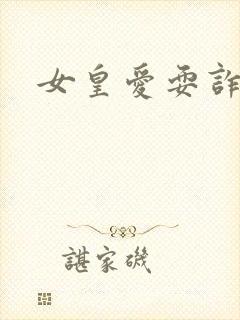 女皇愛耍詐
諶家磯